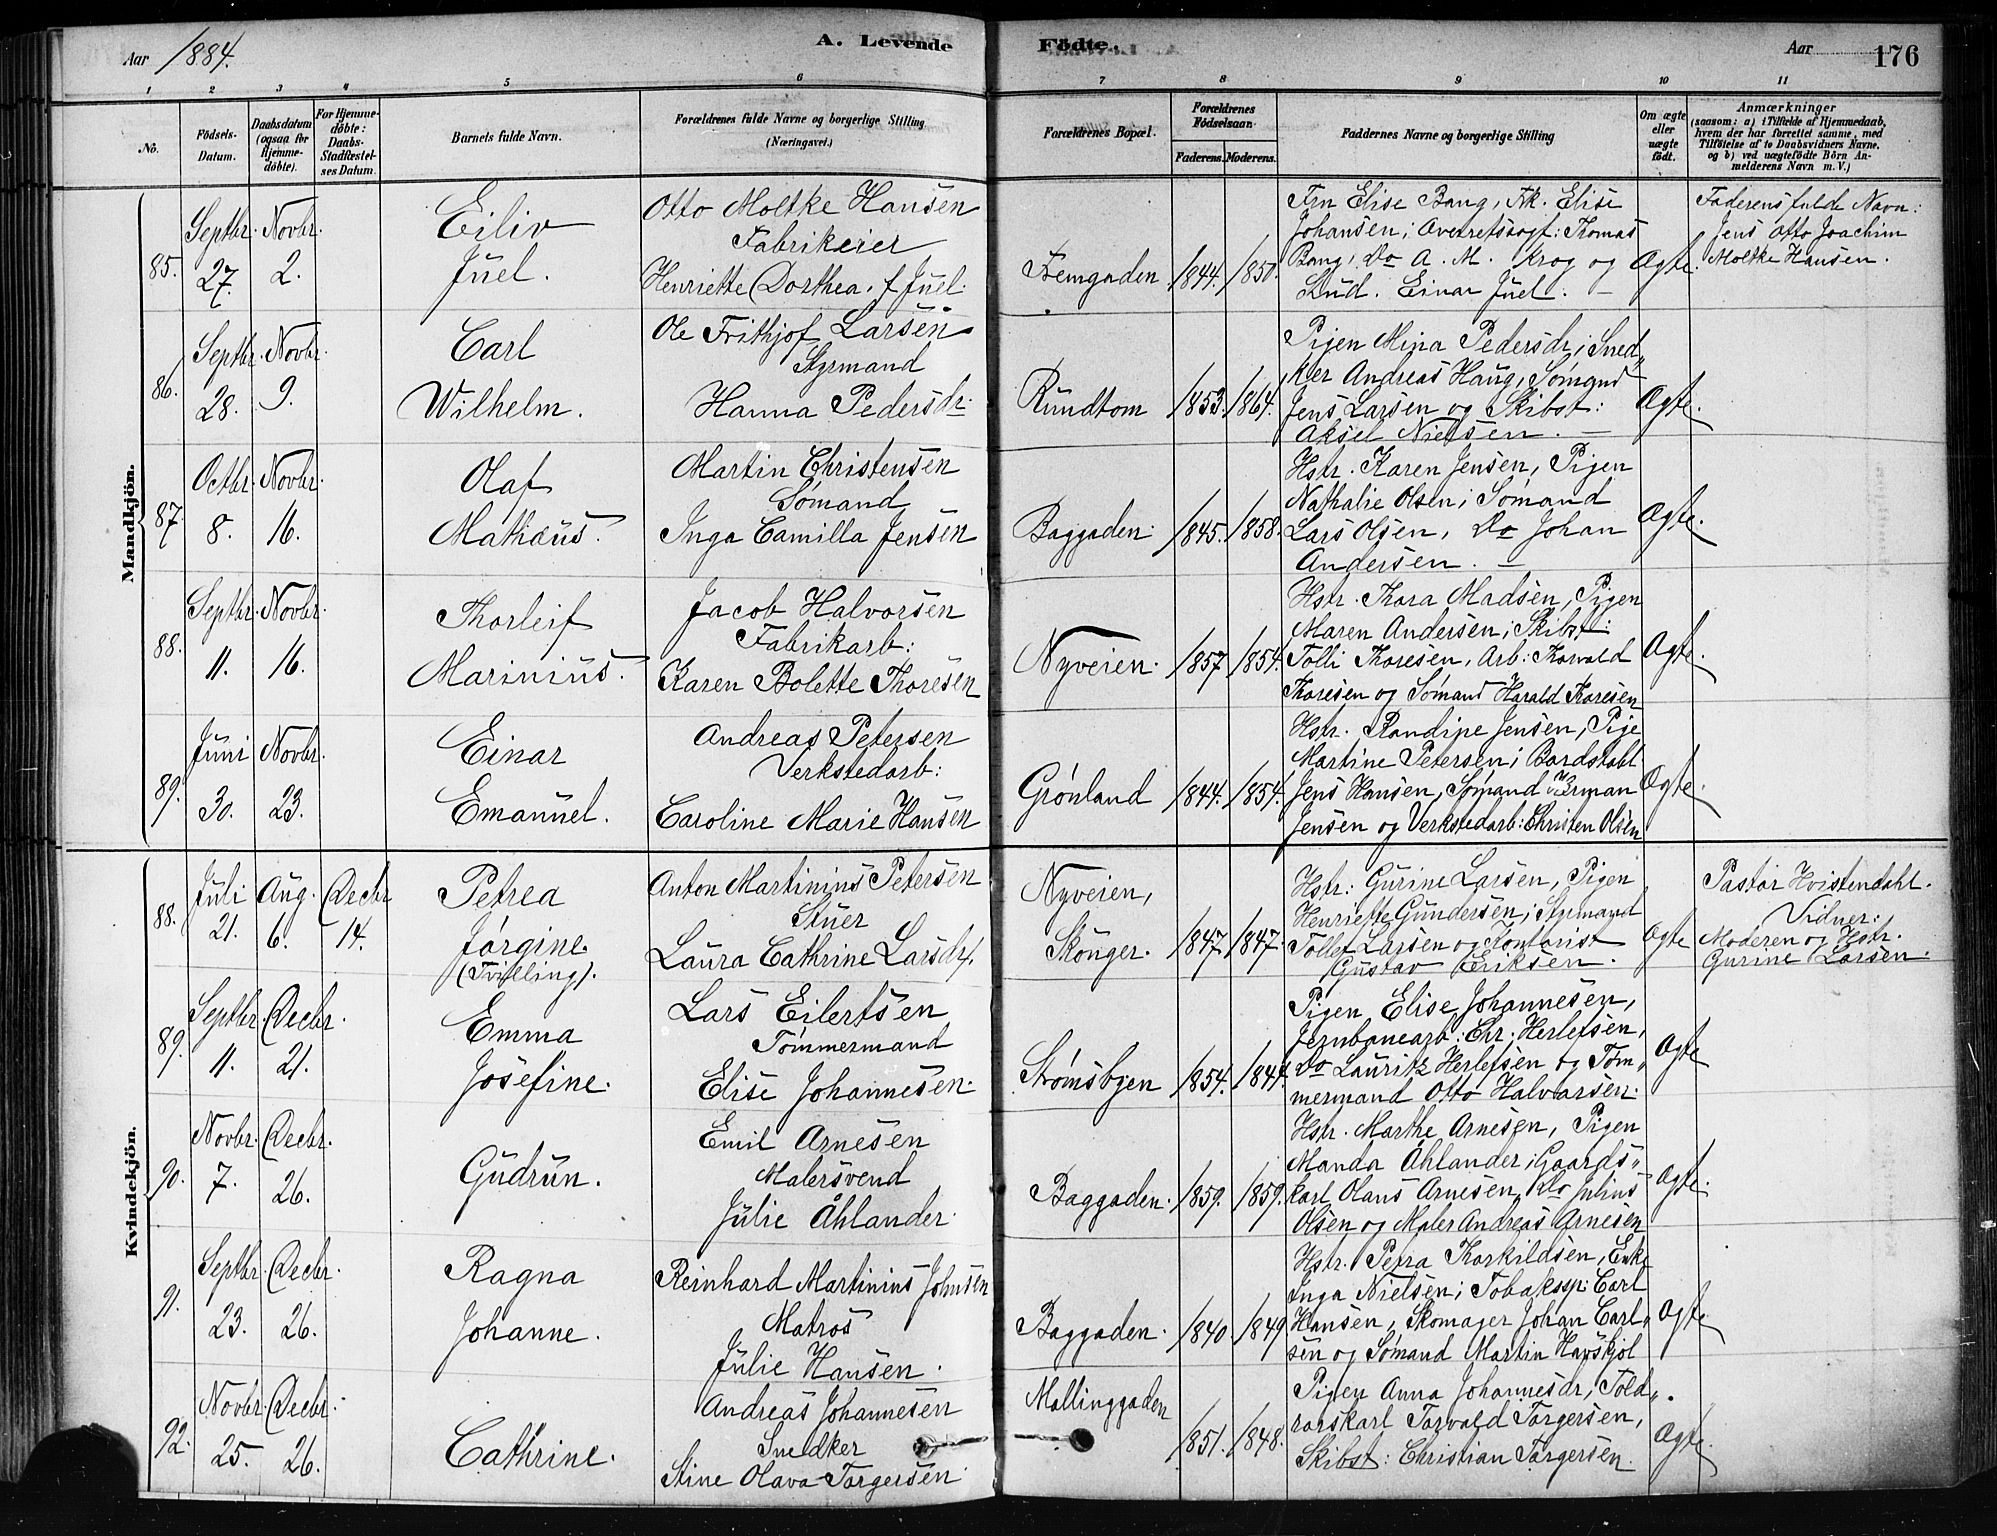 Aar 1884.
A. Levende
Födte.
Aar
176
1 2 3 4 5 6 7 8 9 10 11
No.
Födsels-Datum.
Daabsdatum (ogsaa for Hjemme-döbte).
For Hjemme-döbte: Daabs-Stadfæstel-ses Datum.
Barnets fulde Navn.
Forældrenes fulde Navne og borgerlige Stilling
(Næringsvei.)
Forældrenes Bopæl.
Forældrenes Födselsaar.
Faderens. Moderens.
Faddernes Navne og borgerlige Stilling
Om ægte eller uægte födt.
Anmærkninger
(saasom: a) i Tilfælde af Hjemmedaab,
hvem der har forrettet samme, med
Tilföielse af to Daabsvidners Navne.
og b) ved uægtefödte Börn An-
melderens Navn m.V.)
Mandkjön.
85.
Septbr. 27.
Novbr. 2.
Eiliv
Juel.
Otto Moltke Hansen
Fabrikeier
Henriette Dorthea f. Juel.
Fremgaden
1844. 1850.
Frn Elise Bang, Fk. Elise
Johansen; Overretssagf: Thomas
Bang, Do A. M. Krog og
Stud. Einar Juel. –
Ægte.
Faderens fulde Navn:
Jens Otto Joachim
Moltke Hansen.
86.
Septbr. 28.
Novbr. 9.
Carl
Wilhelm.
Ole Frithjof Larsen
Styrmand
Hanna Pedersdr.
Rundtom
1853. 1864.
Pigen Mina Pedersdr; Sned„
ker Andreas Haug, Sømand
Jens Larsen og Skibst:
Aksel Nielsen. –
Ægte.
87.
Octbr. 8.
Novbr. 16.
Olaf
Mathæus.
Martin Christensen
Sømand
Inga Camilla Jensen
Baggaden.
1845. 1858.
Hstr. Karen Jensen, Pigen
Nathalie Olsen; Sømand
Lars Olsen, Do Johan
Andersen. –
Ægte.
88.
Septbr. 11.
Novbr. 16.
Thorleif
Marinius.
Jacob Halvorsen
Fabrikarb:
Karen Bolette Thoresen
Nyveien.
1857. 1854.
Hstr. Thora Madsen, Pigen
Maren Andersen; Skibst:
Tolli Thoresen, Arb: Thorvald
Thoresen og Sømand Harald Thoresen
Ægte.
89.
Juni 30.
Novbr. 23.
Einar
Emanuel.
Andreas Petersen
Verkstedarb:
Caroline Marie Hansen
Grønland
1844. 1854.
Hstr. Randine Jensen, Pige
Martine Petersen; Bordstabl.
Jens Hansen, Sømand Herman
Jensen og Verkstedarb: Christen Olsen
Ægte.
Kvindekjön.
88.
Juli 21.
Aug. 6.
Decbr 14.
Petrea
Jørgine.
(Tvilling).
Anton Martinius Petersen
Stuer
Laura Cathrine Larsdr.
Nyveien,
Skonger.
1847. 1847.
Hstr: Gurine Larsen, Pigen
Henriette Gundersen; Styrmand
Tollef Larsen og Kontorist
Gustav Eriksen.
Ægte
Pastor Hvistendahl.
Vidner:
Moderen og Hstr.
Gurine Larsen.
89.
Septbr. 11.
Decbr. 21.
Emma
Josefine.
Lars Eilertsen
Tømmermand
Elise Johannesen.
Strømsbyen
1854. 1844.
Pigen Elise Johannesen,
Jernbanearb: Chr. Herlefsen,
Do Lauritz Herlefsen og Tøm„
mermand Otto Halvorsen.
Ægte
90.
Novbr. 7.
Decbr. 26.
Gudrun.
Emil Arnesen
Malersvend
Julie Åhlander.
Baggaden.
1859. 1859.
Hstr. Marthe Arnesen, Pigen
Manda Åhlander; Gaards„
karl Olaus Arnesen, Do Julius
Olsen og Maler Andreas Arnesen
Ægte.
91.
Septbr. 23.
Decbr. 26.
Ragna
Johanne.
Reinhard Martinius Johnsen
Matros
Julie Hansen.
Baggaden.
1840. 1849
Hstr. Petra Thorkildsen, Enke
Inga Nielsen; Tobakssp: Carl
Hansen, Skomager Johan Carl„
sen og Sømand Martin Hauskjol
Ægte.
92.
Novbr. 25.
Decbr. 26.
Cathrine.
Andreas Johannesen
Snedker
Stine Olava Torgersen
Mallinggaden
1851. 1848.
Pigen Anna Johannesdr, Told„
rorskarl Torvald Torgersen,
Skibst: Christian Torgersen.
Ægte.